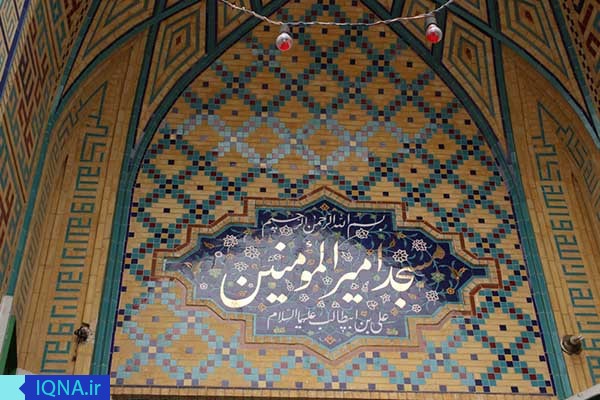 بسم الله الرحمن الرحیم
مسجد امیر المؤمنین
علی بن ابیطالب علیهما السلام
IQNA.ir